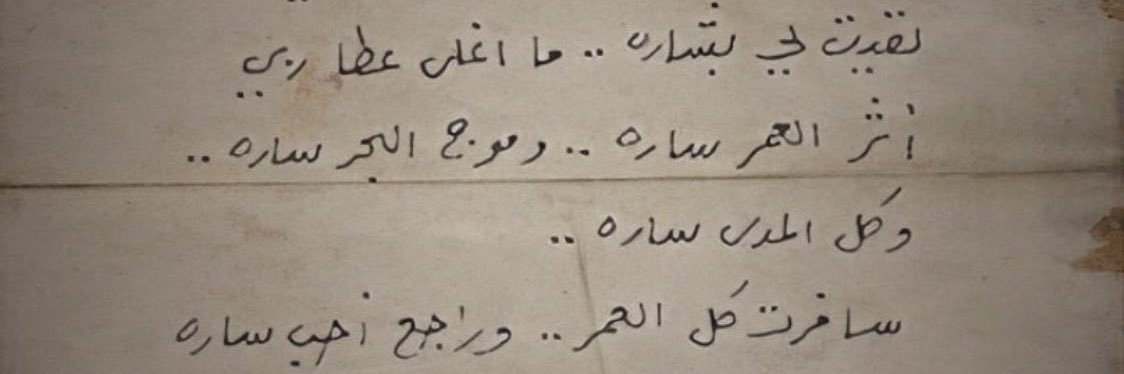 لقيت لي بشاره .. ما اغلى عطا ربي ..
أثر العمر ساره .. وموج البحر ساره ..
وكل المدى ساره ..
سافرت كل العمر .. وراجع أحب ساره